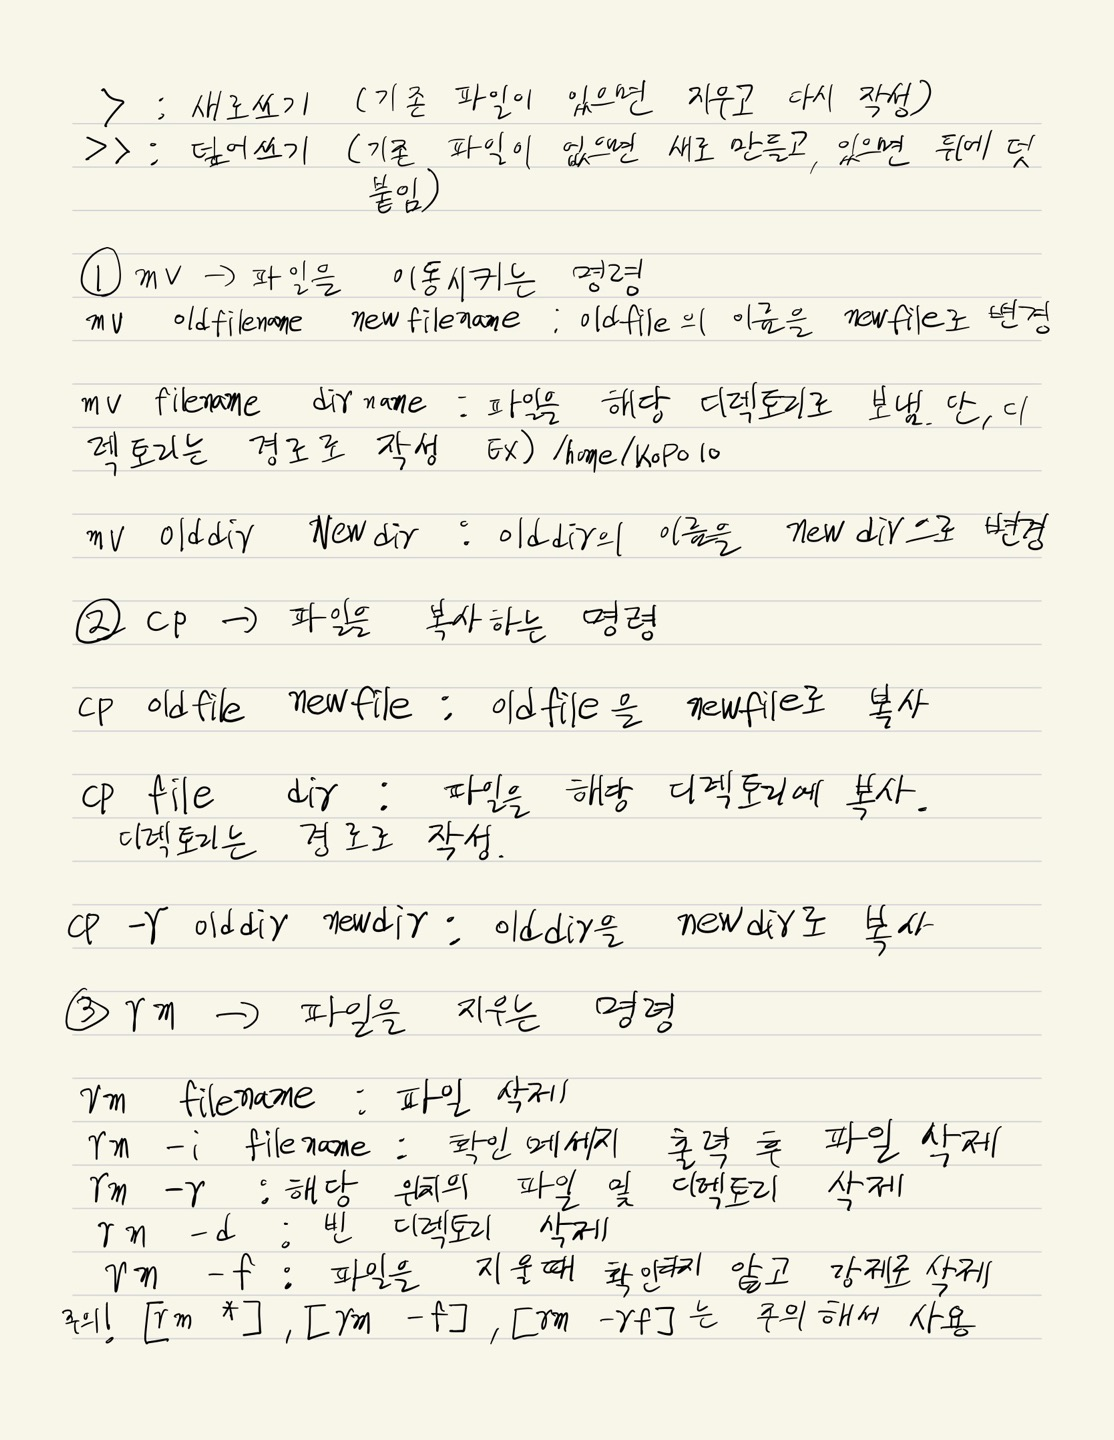 > : 새로쓰기 (기존 파일이 있으면 지우고 다시 작성)
>> : 덮어쓰기 (기존 파일이 없으면 새로 만들고, 있으면 뒤에 덧
붙임)
① mv → 파일을 이동시키는 명령
mv oldfilename newfilename : oldfile의 이름을 newfile로 변경
mv filename dirname : 파일을 해당 디렉토리로 보냄. 단, 디
렉토리는 경로로 작성 EX) /home/kopo10
mv olddir Newdir : olddir의 이름을 newdir으로 변경
② cp → 파일을 복사하는 명령
cp oldfile newfile : oldfile을 newfile로 복사
cp file dir : 파일을 해당 디렉토리에 복사.
디렉토리는 경로로 작성.
cp -r olddir newdir : olddir을 newdir로 복사
③ rm → 파일을 지우는 명령
rm filename : 파일 삭제
rm -i filename : 확인 메세지 출력 후 파일 삭제
rm -r : 해당 위치의 파일 및 디렉토리 삭제
rm -d : 빈 디렉토리 삭제
rm -f : 파일을 지울때 확인하지 않고 강제로 삭제
주의! [rm *], [rm -f], [rm -rf]는 주의해서 사용